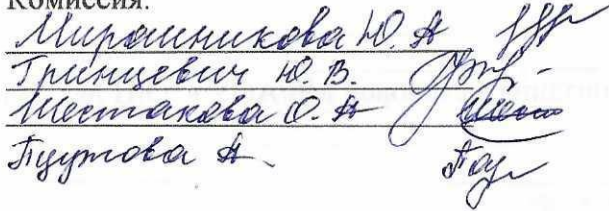 Комиссия:
Мирошникова Ю. А
Гринцевич Ю. В.
Шестакова О. А
А.